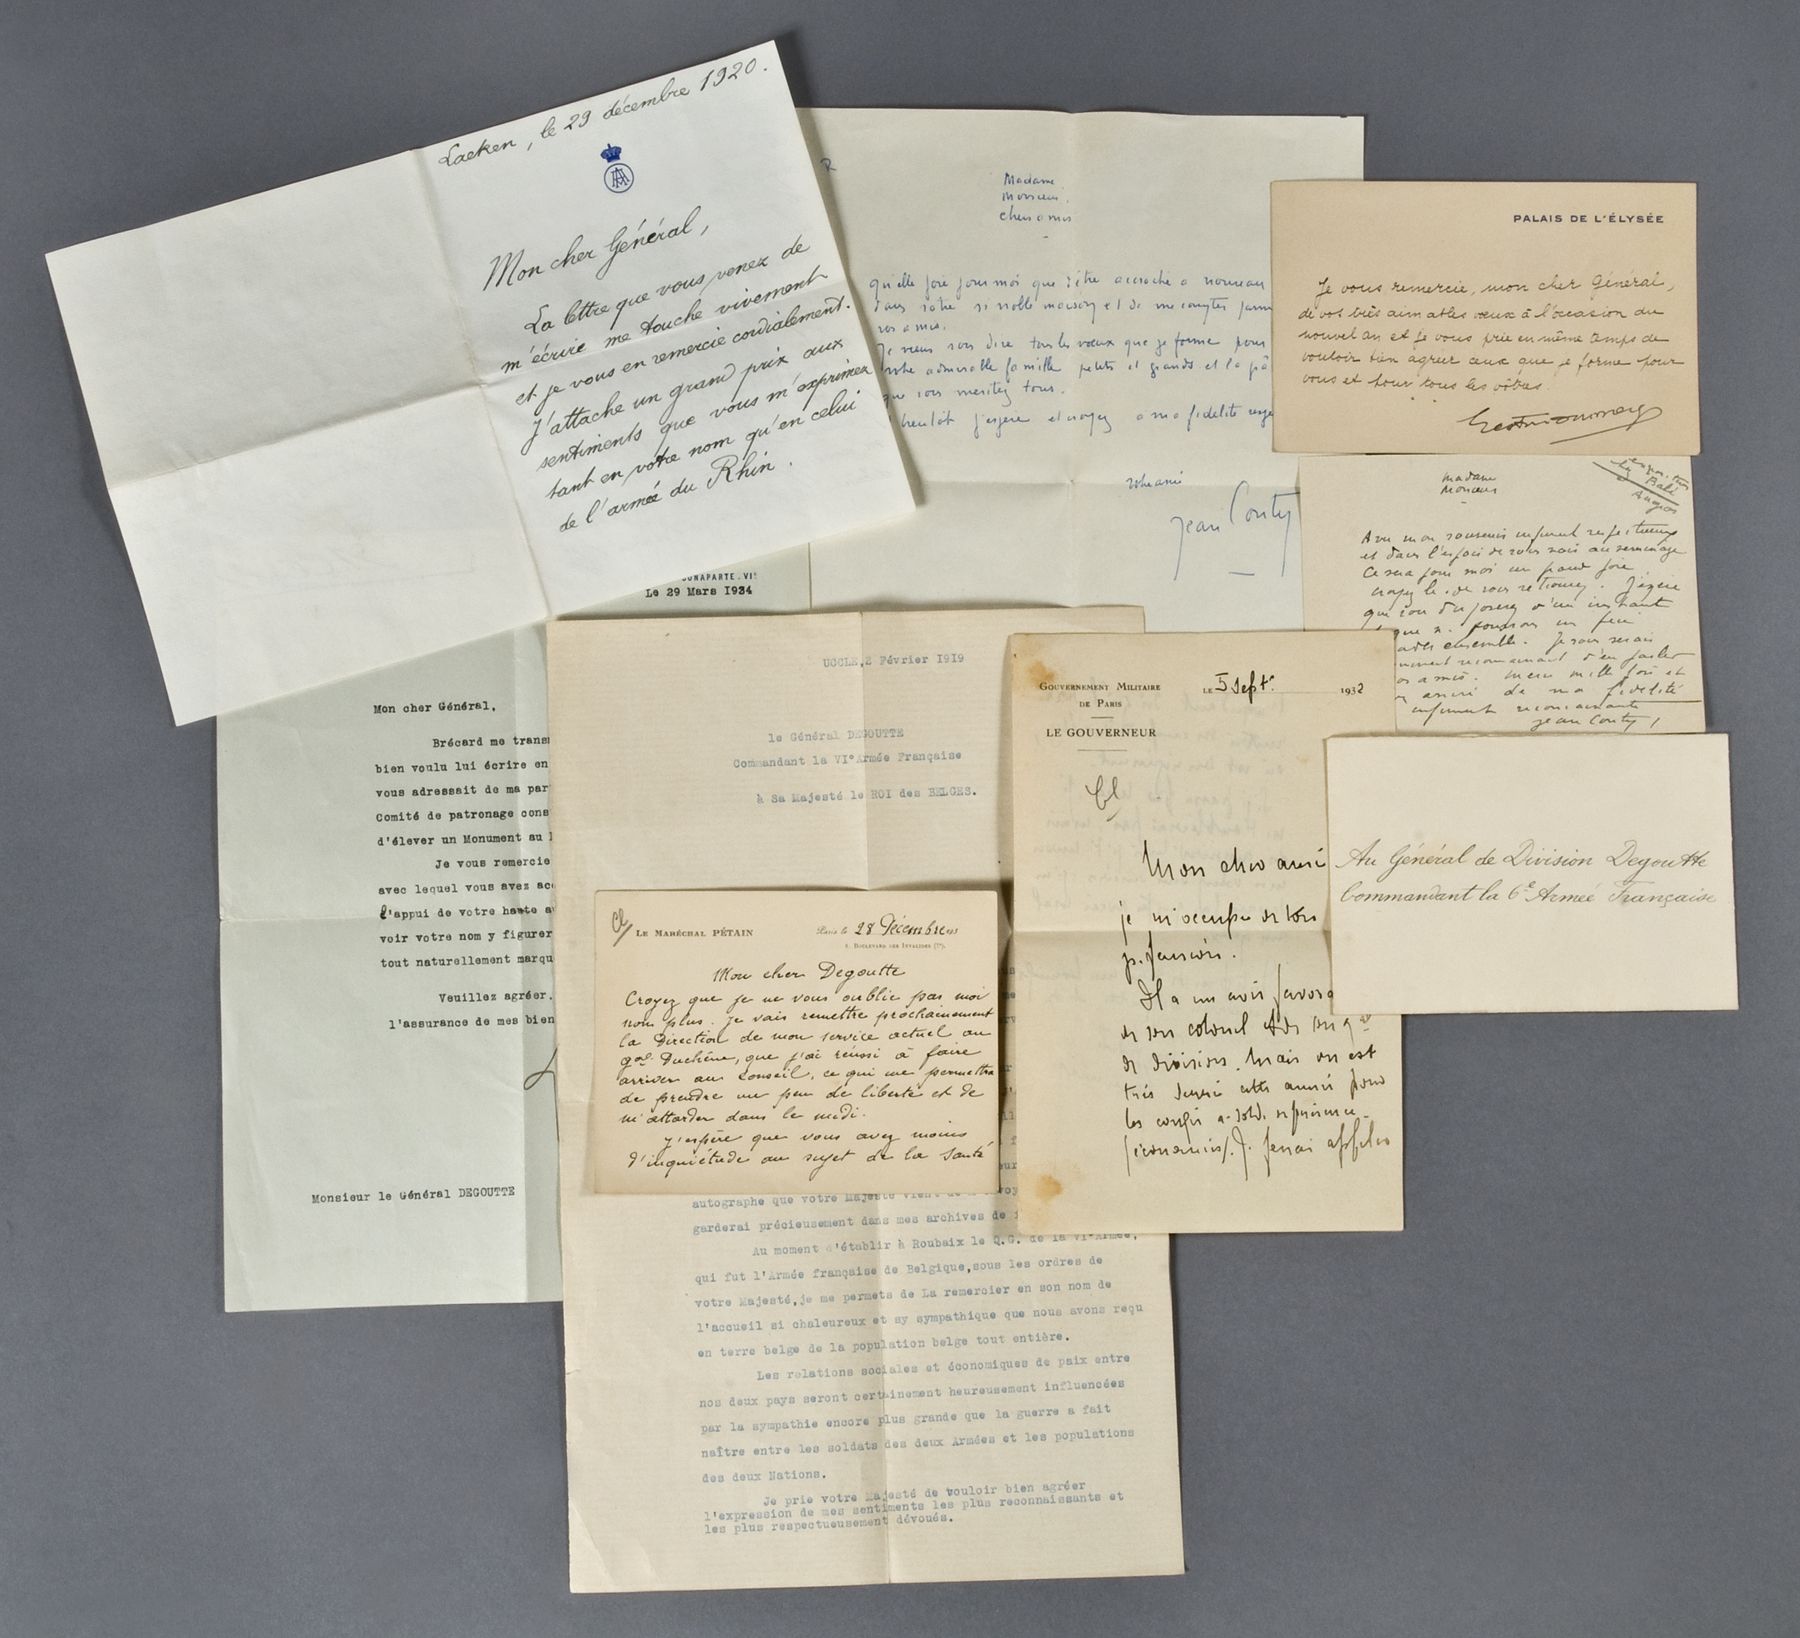 Laeken, le 29 décembre 1920.
Mon cher Général,
La lettre que vous venez de
m'écrire me touche vivement
et je vous en remercie cordialement.
J'attache un grand prix aux
sentiments que vous m'exprimez
tant en votre nom qu'en celui
de l'armée du Rhin.
R
Madame
Monsieur,
chers amis
qu'elle joie pour moi que d'être accroché a nouveau
dans votre si noble maison et de me compter parmi
vos amis.
Je viens vous dire tous les vœux que je forme pour
votre admirable famille petits et grands et la
que vous meritez tous.
bientôt j'espère et croyez a ma fidelité
votre ami
Jean Couty
PALAIS DE L'ÉLYSÉE
Je vous remercie, mon cher Général,
de vos très aimables vœux à l'occasion du
nouvel an et je vous prie en même temps de
vouloir bien agréer ceux que je forme pour
vous et pour tous les vôtres.
Madame
Monsieur
Avec mon souvenir infiniment respectueux
et dans l'espoir de vous voir au vernissage
Ce sera pour moi une grande joie
croyez le, de vous retrouver. J'espère
que vous disposerez d'un instant
que n. pourrons un peu
ensemble. Je vous serais
reconnaissant d'en parler
amis. Merci mille fois et
de ma fidelité
infiniment reconnaissante
Jean Couty
BONAPARTE.VIe
Le 29 Mars 1934
Mon cher Général,
Brécard me trans
bien voulu lui écrire en
vous adressait de ma par
Comité de patronage cons
d'élever un Monument au
Je vous remercie
avec lequel vous avez acc
l'appui de votre haute a
voir votre nom y figurer
tout naturellement marqu
Veuillez agréer,
l'assurance de mes bien
Monsieur le Général DEGOUTTE
UCCLE, 2 Février 1919
le Général DEGOUTTE
Commandant la VI° Armée Française
à Sa Majesté le ROI des BELGES.
autographe que votre Majesté vient de
garderai précieusement dans mes archives de
Au moment d'établir à Roubaix le Q.G. de la VI° Armée,
qui fut l'Armée française de Belgique,sous les ordres de
votre Majesté,je me permets de La remercier en son nom de
l'accueil si chaleureux et sy sympathique que nous avons reçu
en terre belge de la population belge tout entière.
Les relations sociales et économiques de paix entre
nos deux pays seront certainement heureusement influencées
par la sympathie encore plus grande que la guerre a fait
naître entre les soldats des deux Armées et les populations
des deux Nations.
Je prie votre Majesté de vouloir bien agréer
l'expression de mes sentiments les plus reconnaissants et
les plus respectueusement dévoués.
Cl
LE MARÉCHAL PÉTAIN
Paris le 28 Décembre
8, BOULEVARD DES INVALIDES (7e).
Mon cher Degoutte
Croyez que je ne vous oublie pas moi
non plus. Je vais remettre prochainement
la Direction de mon service actuel au
gal Duchêne, que j'ai réussi à faire
arriver au Conseil, ce qui me permettra
de prendre un peu de liberté et de
m'attarder dans le midi.
J'espère que vous avez moins
d'inquiétude au sujet de la santé
GOUVERNEMENT MILITAIRE
DE PARIS
LE GOUVERNEUR
LE 5 Septe 1932
Cl
Mon cher ami
je m'occupe de
Il a un avis favora
de son colonel
de division. Mais on est
très serré cette année pour
les congés
(économies). Je ferai
Au Général de Division Degoutte
Commandant la 6e Armée Française